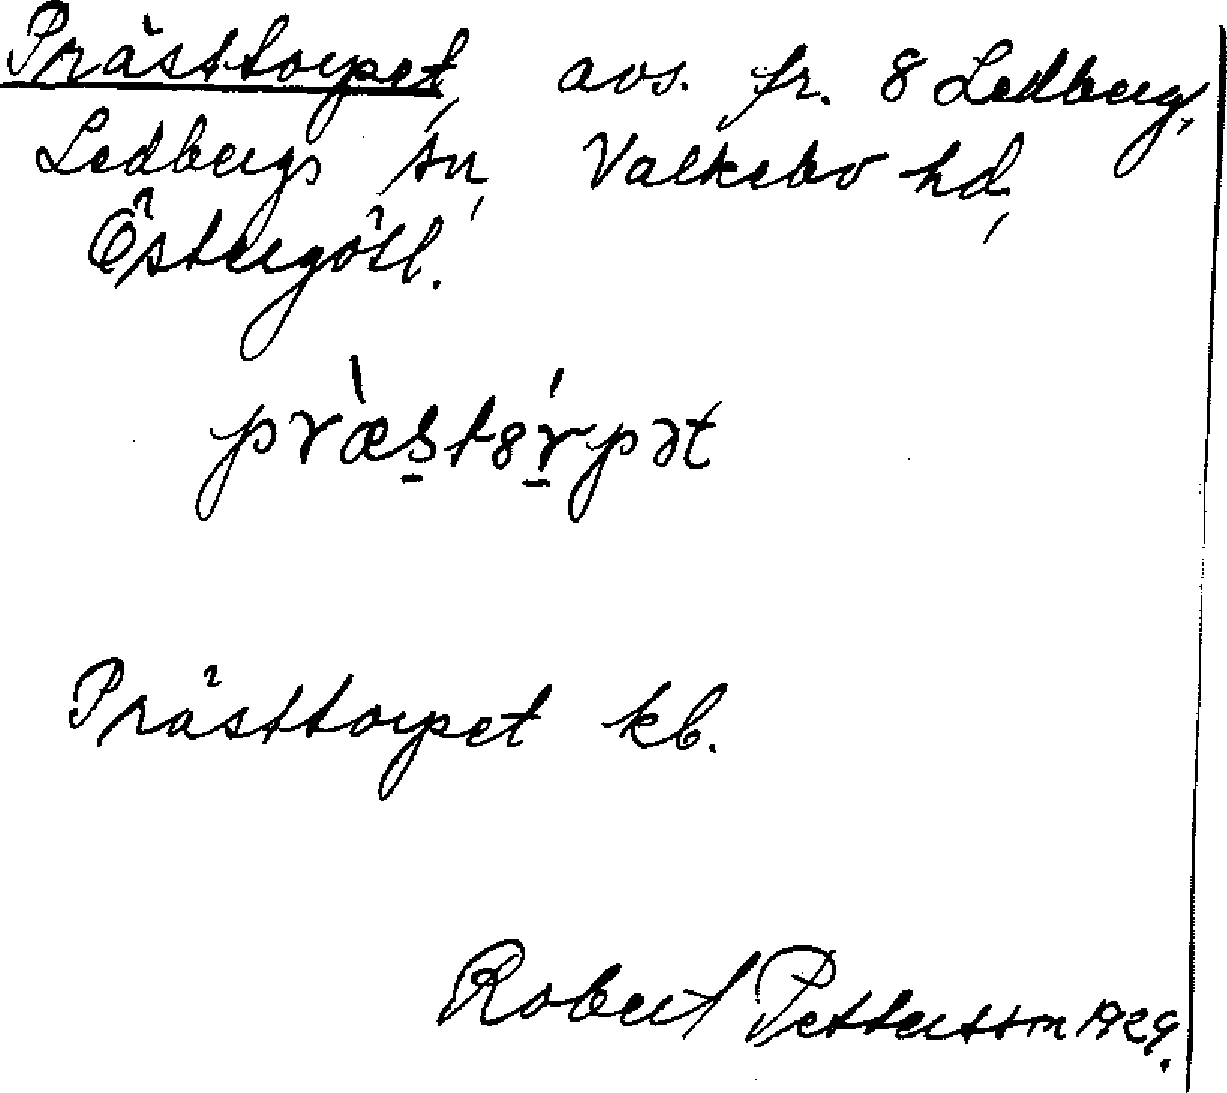 Prästtorpet, avs. fr. 8 Ledberg,
Ledbergs sn, Valkebo hd,
Östergötl.
præ̀st8́rpət
Prästtorpet kb.
Robert Pettersson 1929.